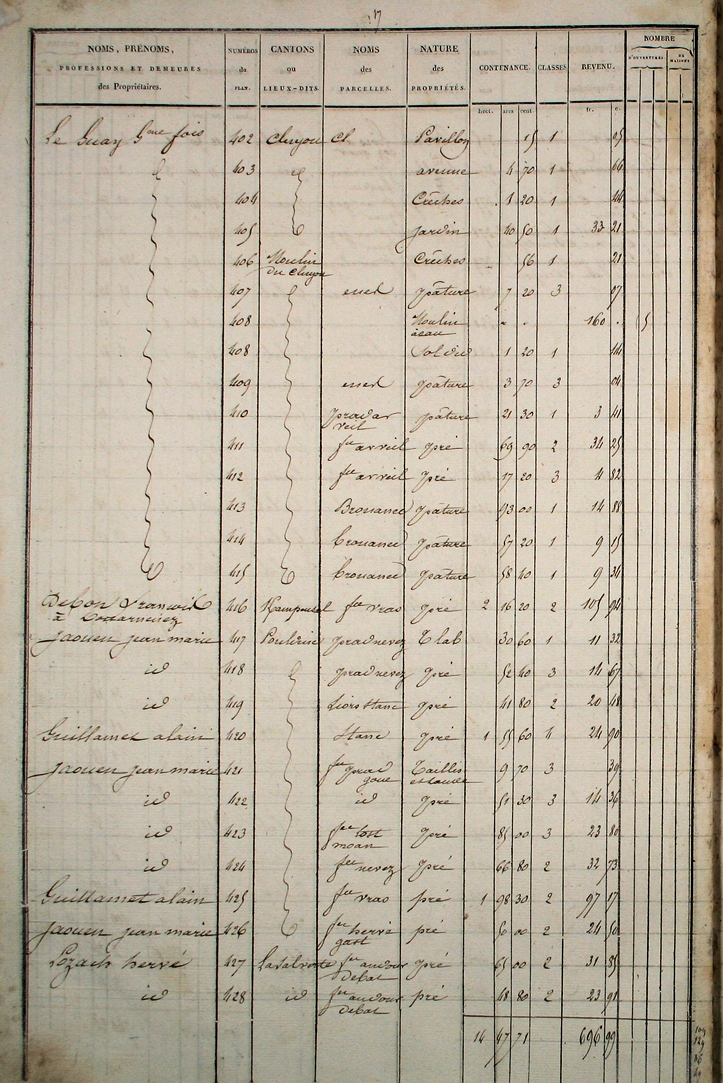 17
NOMS, PRÉNOMS, PROFESSIONS ET DEMEURES des Propriétaires. NUMÉROS du PLAN. CANTONS ou LIEUX-DITS. NOMS des PARCELLES. NATURE des PROPRIÉTÉS. CONTENANCE. CLASSES. REVENU. NOMBRE D'OUVERTURES DE MAISONS
hect. ares cent. fr. c.
Le Guay Gme fois 402 Cluyou Cl Pavillon 15 1 05
403 avenue 4 70 1 66
404 Crêches 1 20 1 44
405 Jardin 40 50 1 33 21
406 Moulin du Cluyou Crêches 56 1 21
407 pâture 7 20 3 07
408 Moulin à eau 160 . 5
408 Sol du 1 20 1 44
409 pâture 3 70 3 04
410 prad ar veil pâture 21 30 1 3 41
411 fec ar veil pré 69 90 2 34 25
412 fec ar veil pré 17 20 3 4 82
413 Brouanec pâture 93 00 1 14 88
414 brouanec pâture 57 20 1 9 15
415 brouanec pâture 58 40 1 9 34
416 fec vras pré 2 16 20 2 105 94
à Douarnenez
Jaouen jean marie 417 Pouldrin prad nevez 30 60 1 11 32
id 418 prad nevez pré 52 40 3 14 67
id 419 Liors stanc pré 41 80 2 20 48
Guillamet alain 420 stanc pré 1 55 60 4 24 90
Jaouen jean marie 421 fec prad goue Taillis 9 70 3 39
id 422 id pré 51 30 3 14 36
id 423 fec tost moan pré 85 00 3 23 80
id 424 fec nevez pré 66 80 2 32 73
Guillamet alain 425 fec vras pré 1 98 30 2 97 17
Jaouen jean marie 426 fec hervé gast pré 50 00 2 24 50
Lozach hervé 427 fec an dour debat pré 65 00 2 31 85
id 428 id fec an dour debat pré 48 80 2 23 91
14 47 71 696 99